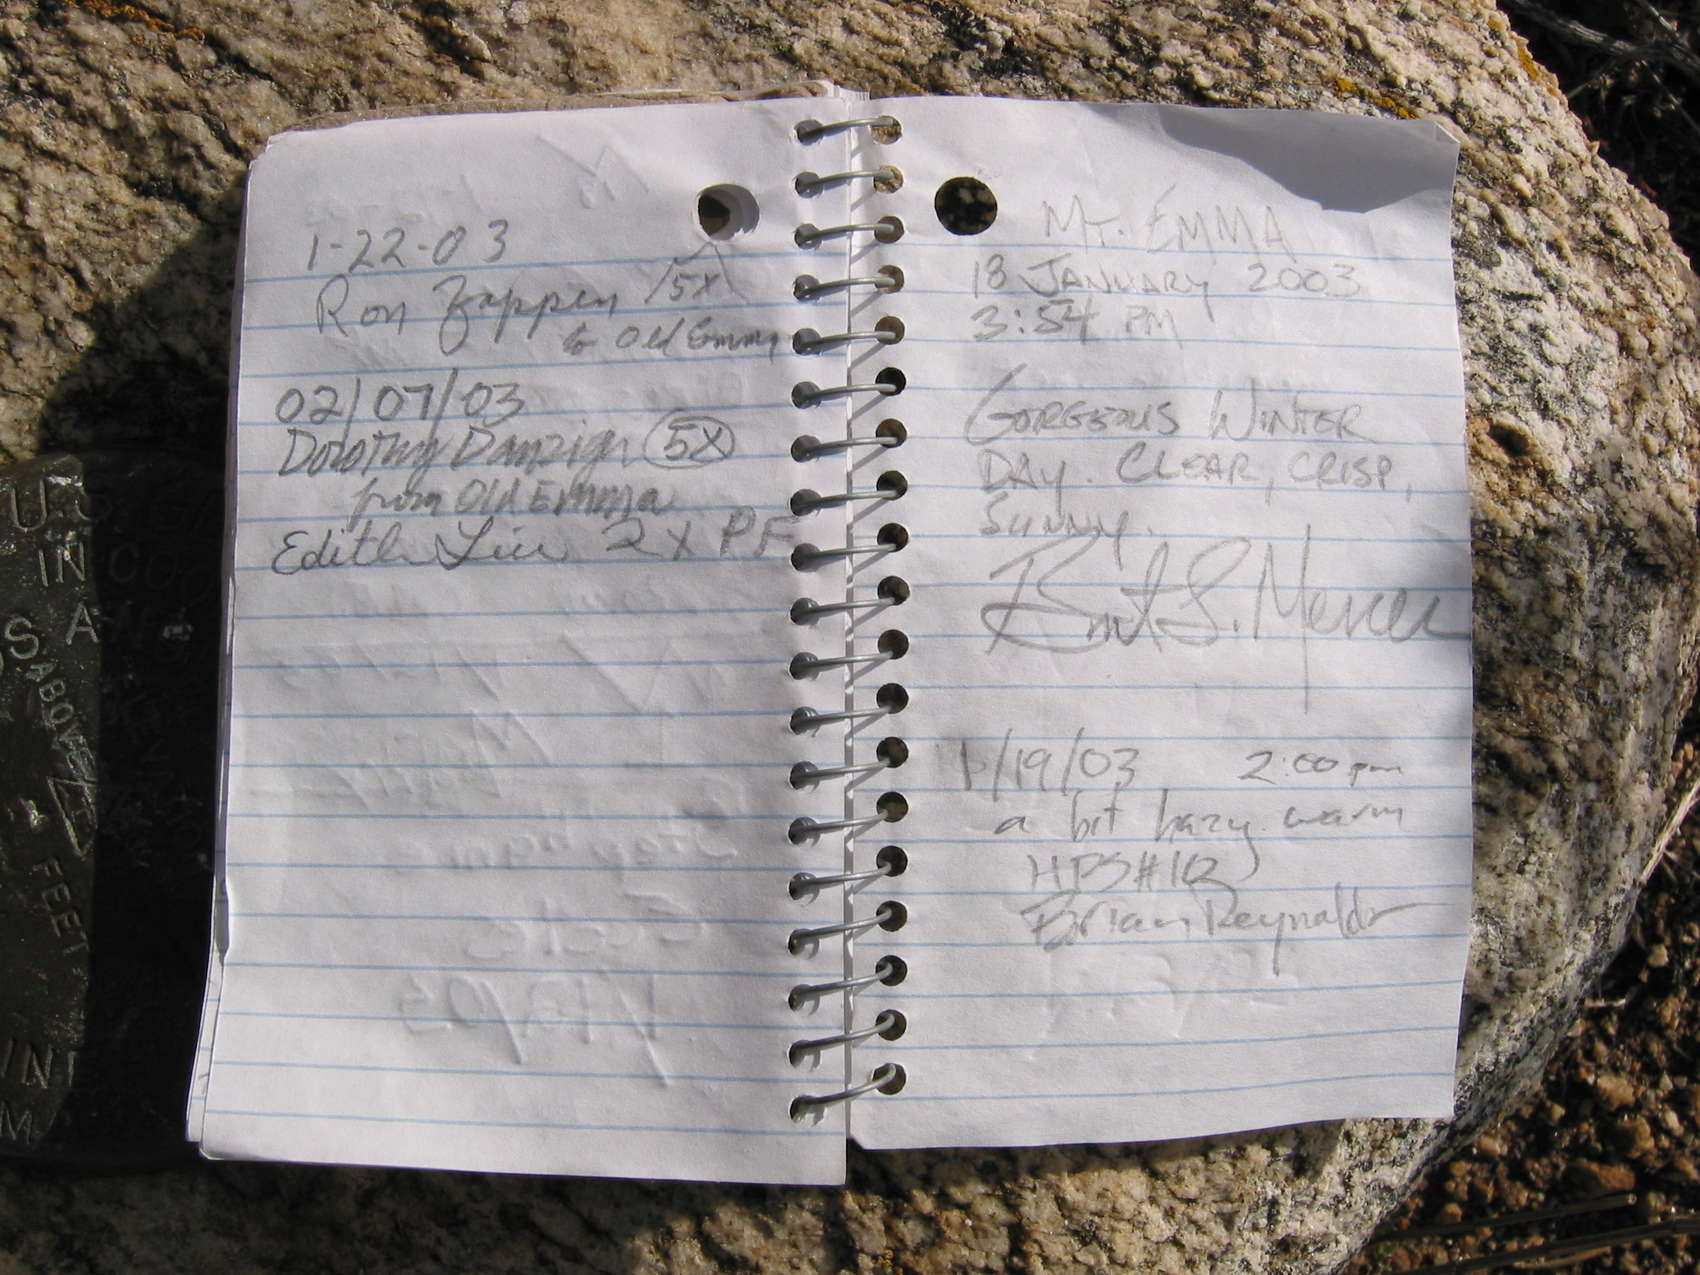 1-22-03
Ron Zappen 5X
to Old Emma
02/07/03
Dorothy Danziger 5X
from Old Emma
Edith Liu 2X PF
MT. EMMA
18 JANUARY 2003
3:54 PM
GORGEOUS WINTER
DAY. CLEAR, CRISP,
SUNNY.
1/19/03 2:00 pm
a bit hazy warm
Brian Reynolds
U.S.
IN
SA
ABOVE
FEET
IN
M